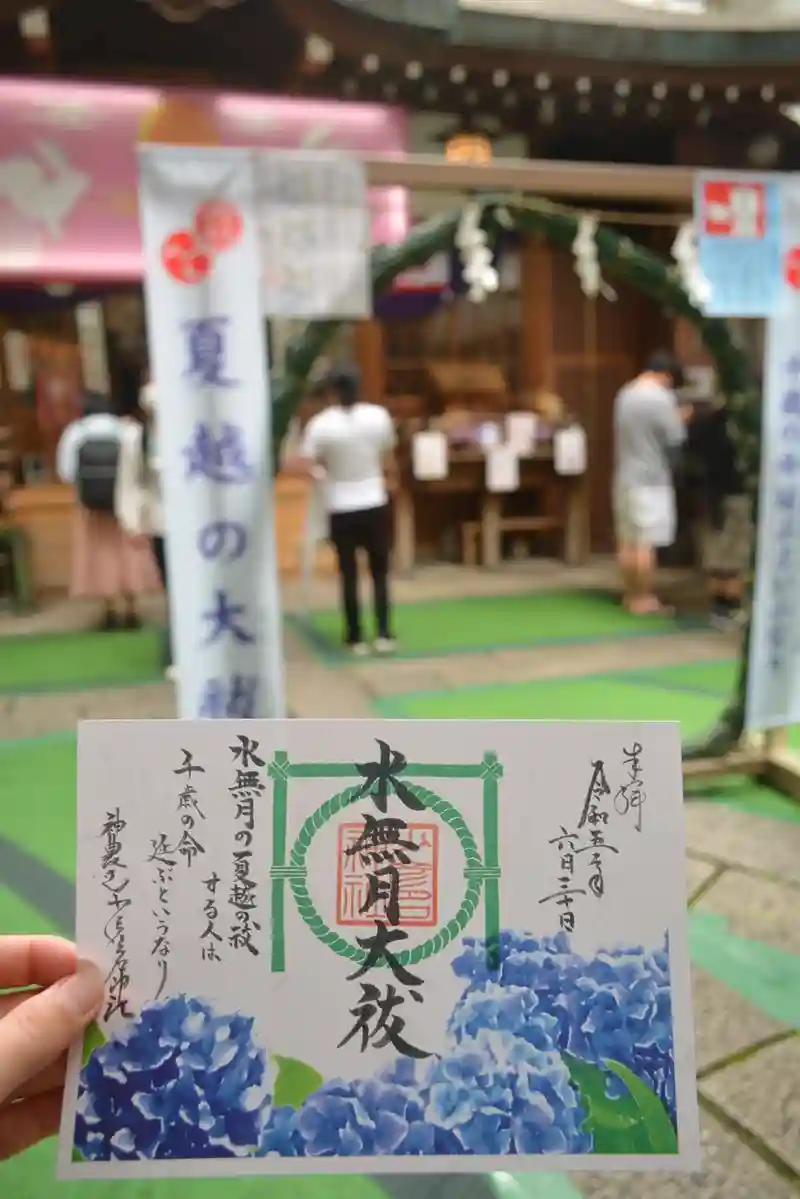 夏越の大祓
奉拝
令和五年
六月三十日
水無月大祓
水無月の夏越の祓
する人は
千歳の命
延ぶというなり